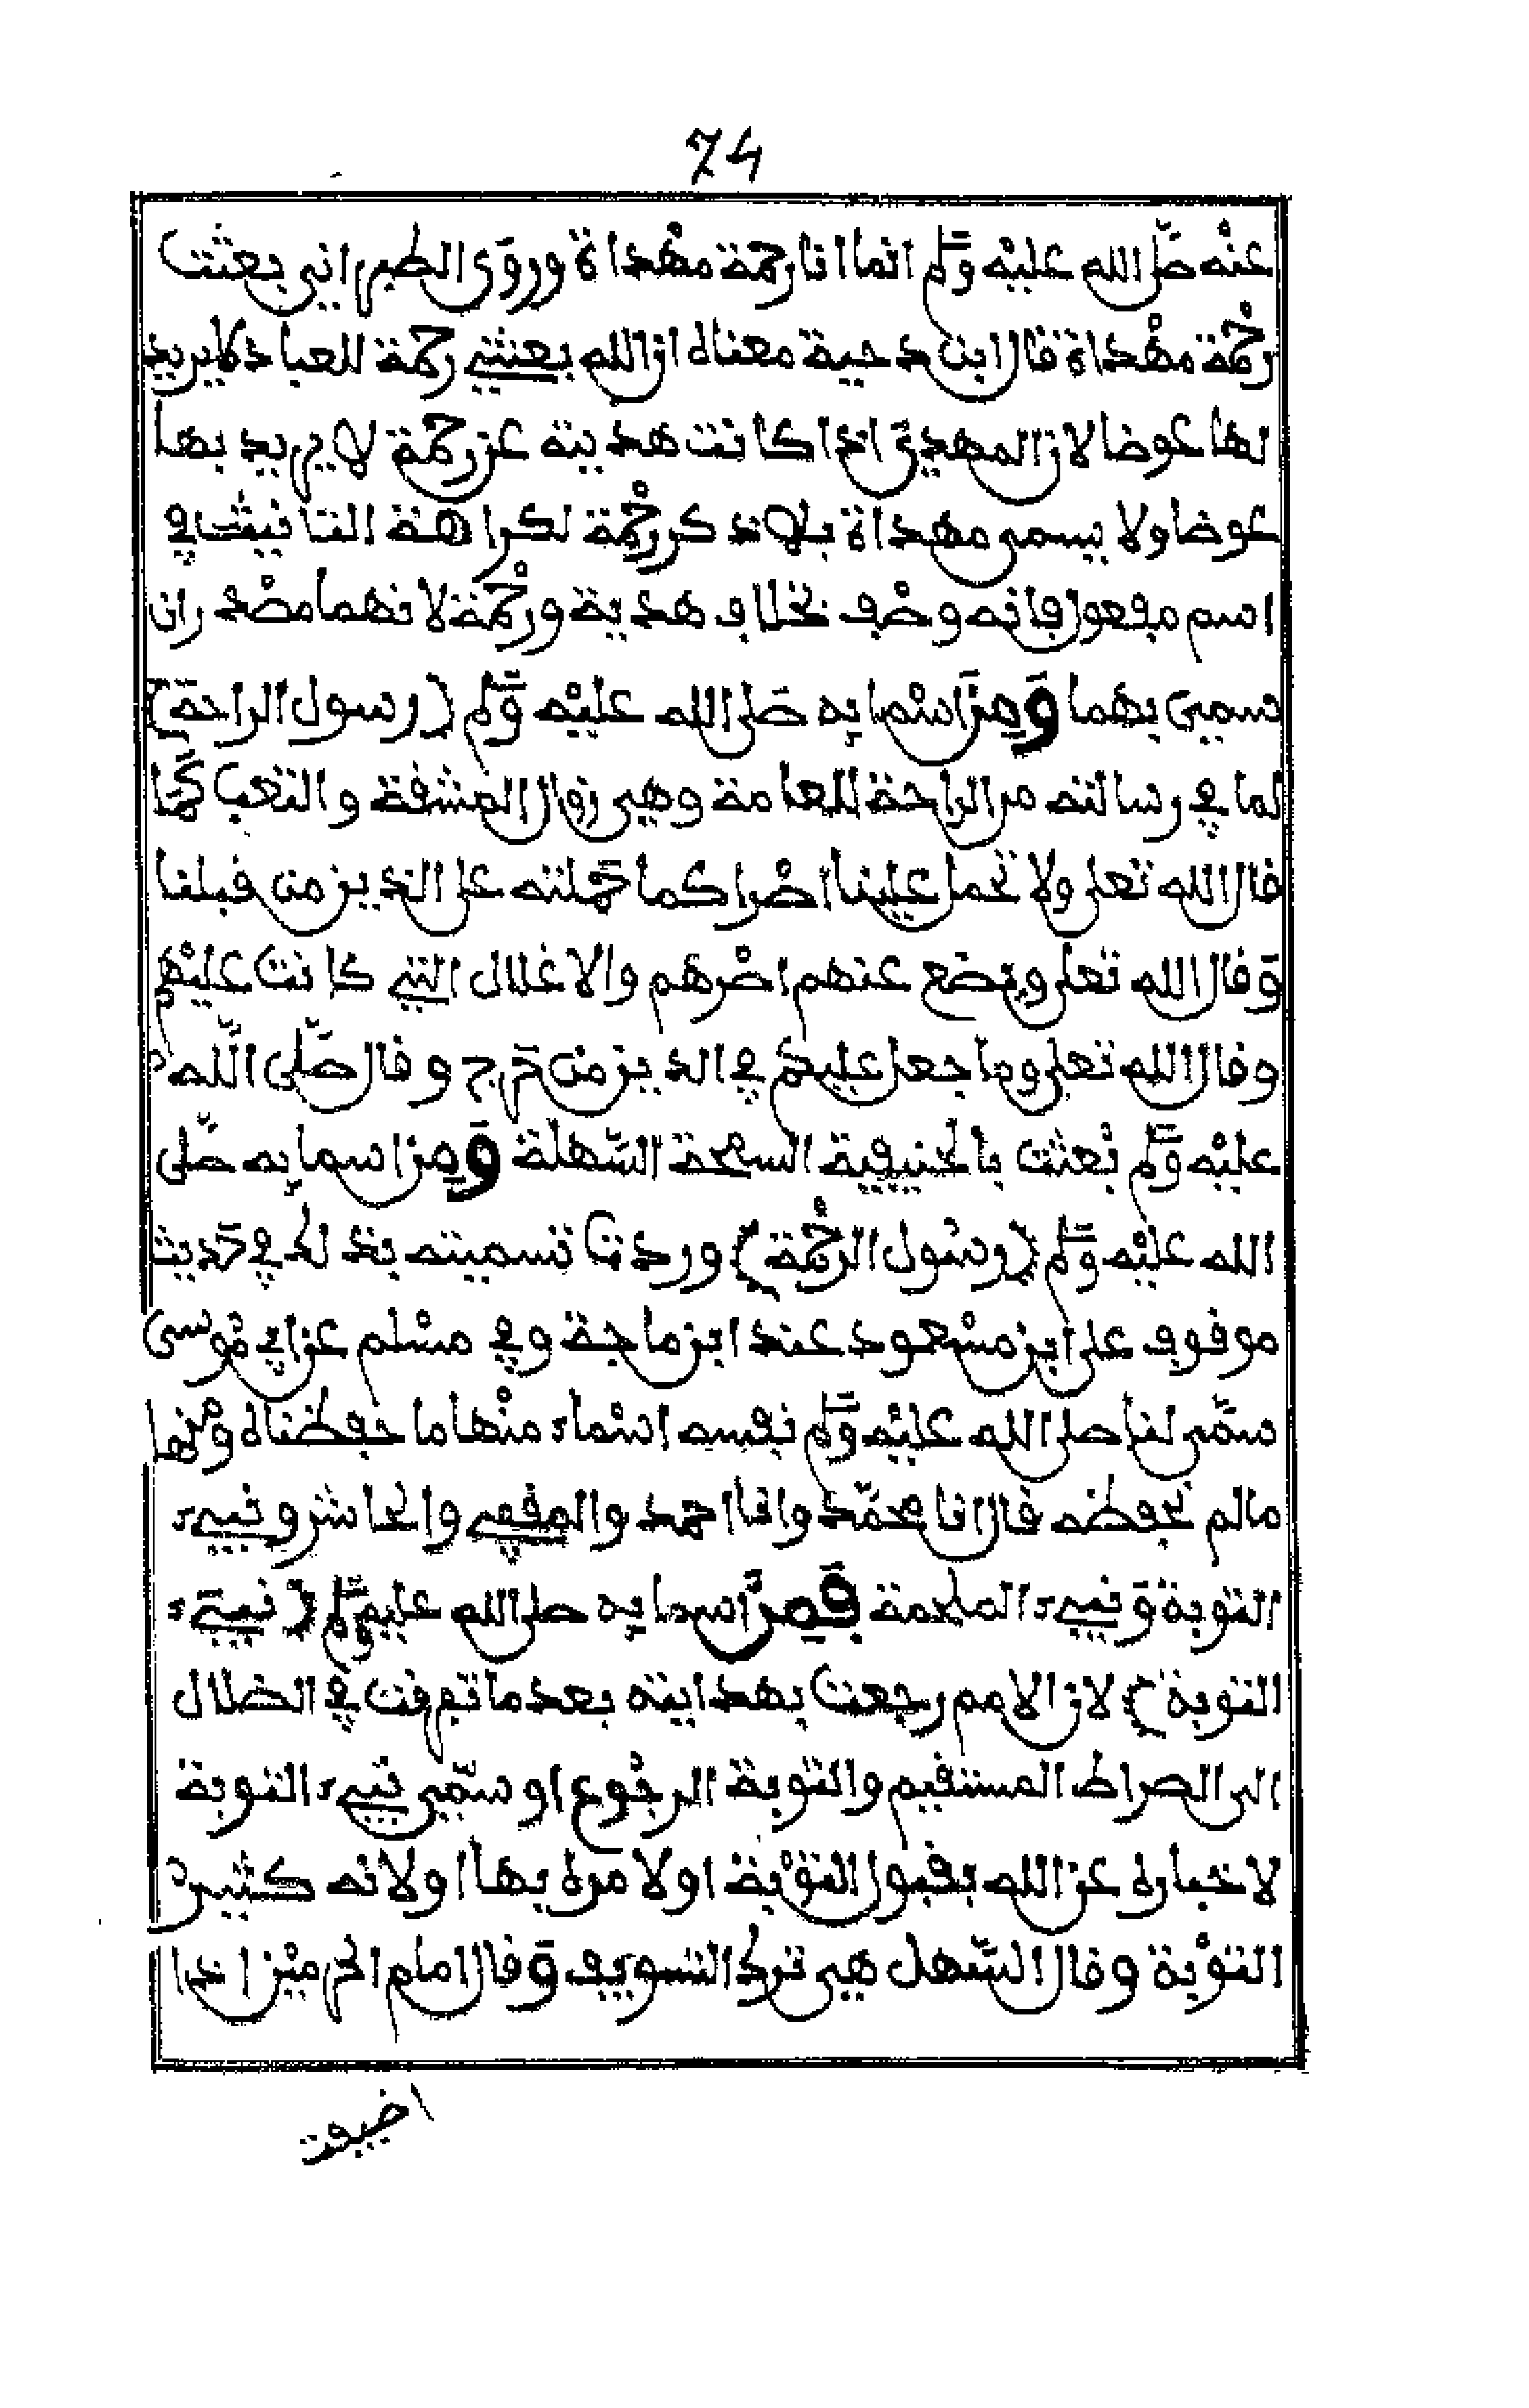 74
عنْه صَّلى الله عليْه وسَّلم انما انا رحمة مهْداة وروَى الطبراني بعثت
رحْمة مهْداة قال ابن دحية معناه ان الله بعثني رحمة للعباد لا يريد
لها عوضا لان المهدي اذا كانت هديته عن رحمة لا يريد بها
عوضا ولا يسمى مهداة بلا ذكر رحْمة لكراهة التانيث في
اسم مفعول فانه وصْف بخلاف هدية ورحْمة لانهما مصْدران
سمي بهما وَمِن اسْمايه صَلى الله عليْه وسَّلم (رسول الراحة)
لما في رسالته من الراحة للعامة وهي زوال المشقة والتعب كَما
قال الله تعلى ولا تحمل علينا اصْرا كما حَملته على الذين من قبلنا
وَقال الله تعلى ويضع عنهم اصْرهم والاغلال التي كانت عليْهم
وقال الله تعلى وما جعل عليكم في الدين من حَرج وقال صَّلى اللَّه
عليْه وسَّلم بُعثت بالحنيفية السمحة السَّهلة وَمِن اسمايه صَّلى
الله عليْه وسَّلم (رسُول الرحْمة) وردت تسميته بذلك في حَديث
موقوف على ابن مسْعود عند ابن ماجة وفي مسْلم عن ابي مُوسى
سمَّى لنا صلى الله عليْه وسَّلم نفسه اسْماء منْها ما حفظناه ومنْها
مالم نحفظه فقال انا محمّد وانا احمد والمقفي والحاشر ونبيء
التوبة وَنبيء الملحمة فَمِن اسمايه صلى الله عليه وسَّلم (نبيء
التوبة) لان الامم رجعت بهدايته بعد ما تفرقت في الضلال
الى الصراط المستقيم والتوبة الرجُوع او سمّي نبيء التوبة
لاخباره عن الله بقبول التوْبة او لامره بها او لانه كثير
التوْبة وقال السَّهل هي ترك التسويف وَقال امام الحرميْن اذا
اضيفت